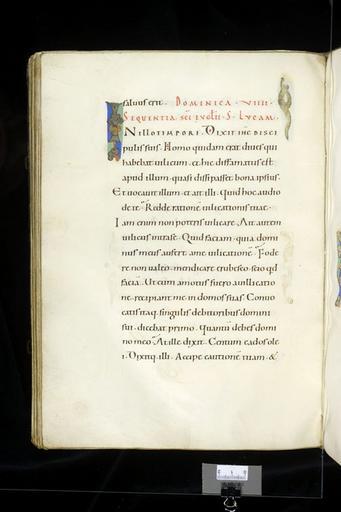 saluus erit. DOMINICA . VIIII .
SEQUENTIA SCI EVGLII . S . LVCAM .
IN ILLO TEMPORE . Dixit ihc disci
pulis suis . Homo quidam erat diues qui
habebat uilicum . et hic diffamatus est
apud illum . quasi dissipasset bona ipsius .
Et uocauit illum . et ait illi . Quid hoc audio
de te . Redde rationē uilicationis tuae .
Iam enim non poteris uilicare . Ait autem
uilicus intra se . Quid faciam . quia domi
nus meus aufert a me uilicationē . Fode
re non ualeo . mendicare erubesco . scio qd
faciā . Ut cum amotus fuero a uilicatio
ne . recipiant me in domos suas . Conuo
catis itaq. singulis debitoribus domini
sui . dicebat primo . Quantū debes domi
no meo . At ille dixit . Centum cados ole
i . Dixitq. illi . Accipe cautionē tuam . &